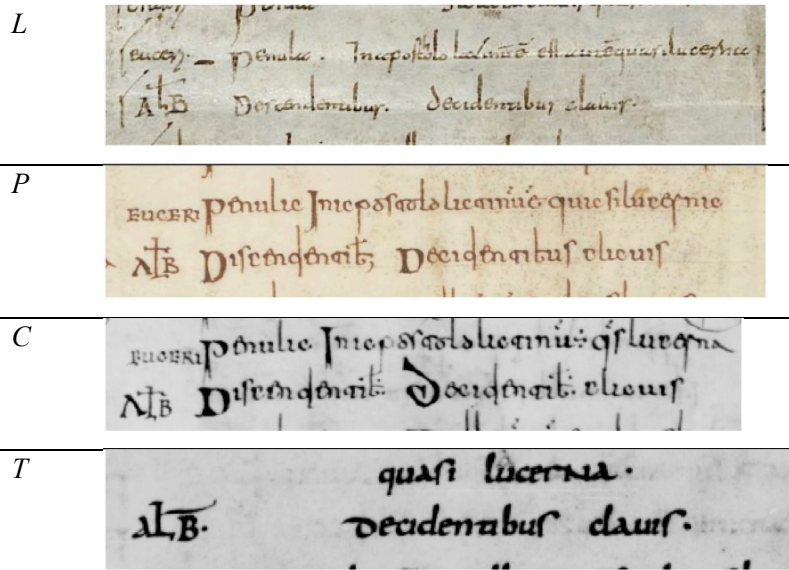 L
euceri. penula. In apostolo latinū ē
Descendentibus. decidentibus clavis.
P
EUCERI Penula In apostolo latinū ÷ quasi lucerna
ALB Discendentib; Decidentibus clauis
C
EUCERI Penula In apostolo latinū ÷ qsi lucerna
ALB Discendentib. Decidentib. clauis
T
quasi lucerna.
ALB. Decidentibus clauis.